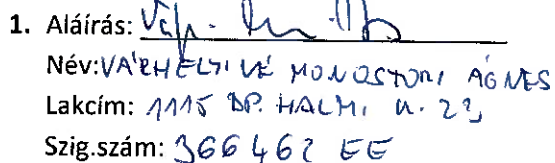 1. Aláírás:
Név: VÁRHELYI VÉ MONOSTORI ÁGNES
Lakcím: 1115 BP. HALMI U. 22,
Szig.szám: 366462 EE